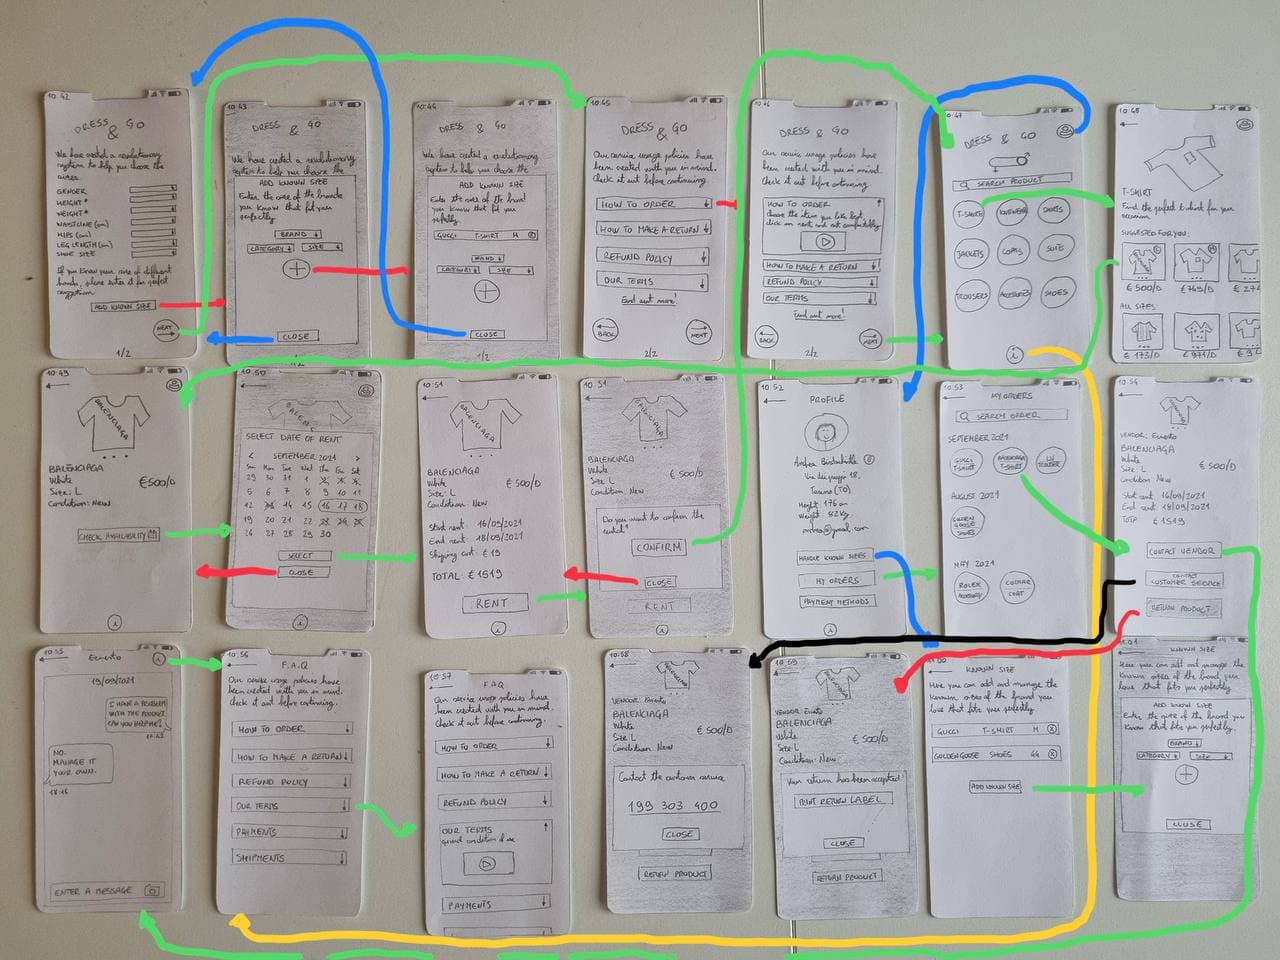 10:42
DRESS & GO
We have created a revolutionary
system to help you choose the
GENDER
HEIGHT *
WEIGHT *
WAISTLINE (cm)
HIPS (cm)
LEG LENGTH (cm)
SHOE SIZE
If you know your size of different
brands, please enter it for perfect
ADD KNOWN SIZE
NEXT
1/2
10:43
DRESS & GO
We have created a revolutionary
system to help you choose the
ADD KNOWN SIZE
Enter the size of the brands
you know that fit you
perfectly
BRAND
CATEGORY
SIZE
CLOSE
1/2
10:44
DRESS & GO
We have created a revolutionary
system to help you choose the
ADD KNOWN SIZE
Enter the size of the brand
you know that fit you
perfectly
GUCCI T-SHIRT M
CLOSE
1/2
10:45
DRESS & GO
Our service usage policies have
been created with you in mind.
Check it out before continuing.
HOW TO ORDER
HOW TO MAKE A RETURN
REFUND POLICY
OUR TERMS
Find out more!
BACK
NEXT
2/2
10:46
DRESS & GO
Our service usage policies have
been created with you in mind.
Check it out before continuing.
HOW TO ORDER
choose the item you like best
click on rent and
HOW TO MAKE A RETURN
REFUND POLICY
OUR TERMS
Find out more!
BACK
NEXT
2/2
10:47
DRESS & GO
SEARCH PRODUCT
T-SHIRTS
KNITWEAR
SHIRTS
JACKETS
COATS
SUITS
TROUSERS
ACCESSORIES
SHOES
i
10:48
T-SHIRT
Find the perfect t-shirt for your
occasion
SUGGESTED FOR YOU:
€ 500/D
€ 749/D
€ 27
ALL SIZES:
€ 173/D
€ 971/D
€ 9
10:49
BALENCIAGA
BALENCIAGA
White
Size: L
Condition: New
€ 500/D
CHECK AVAILABILITY
i
10:50
SELECT DATE OF RENT
< SEPTEMBER 2021 >
Sun Mon Tue Wed Thu Fri Sat
29 30 31
5 6 7 8 9 10 11
12 14 15 16 17 18
19 20 21 22
26 27 28 29 30
SELECT
CLOSE
i
10:51
BALENCIAGA
BALENCIAGA
White
Size: L
Condition: New
€ 500/D
Start rent 16/09/2021
End rent 18/09/2021
Shipping cost: € 19
TOTAL € 1519
RENT
i
10:51
BALENCIAGA
BALENCIAGA
White
Size: L
Condition: New
€ 500/D
Do you want to confirm the
rental?
CONFIRM
CLOSE
RENT
i
10:52
PROFILE
Torino (TO)
Height 176 cm
Weight 82 kg
MANAGE KNOWN SIZES
MY ORDERS
PAYMENT METHODS
i
10:53
MY ORDERS
SEARCH ORDER
SEPTEMBER 2021
GUCCI T-SHIRT
BALENCIAGA T-SHIRT
LV TROUSER
AUGUST 2021
GOLDEN GOOSE SHOES
MAY 2021
ROLEX ACCESSORY
COLMAR COAT
10:54
VENDOR: Ernesto
BALENCIAGA
White
Size: L
Condition: New
€ 500/D
Start rent 16/09/2021
End rent 18/09/2021
TOTAL € 1519
CONTACT VENDOR
CONTACT
CUSTOMER SERVICE
RETURN PRODUCT
10:55
Ernesto
i
19/09/2021
I HAVE A PROBLEM
WITH THE PRODUCT.
CAN YOU HELP ME?
NO.
MANAGE IT
YOUR OWN.
18:16
ENTER A MESSAGE
10:56
F.A.Q
Our service usage policies have
been created with you in mind.
check it out before continuing.
HOW TO ORDER
HOW TO MAKE A RETURN
REFUND POLICY
OUR TERMS
PAYMENTS
SHIPMENTS
10:57
FAQ
Our service usage policies have
been created with you in mind.
check it out before continuing.
HOW TO ORDER
HOW TO MAKE A RETURN
REFUND POLICY
OUR TERMS
general condition of use
PAYMENTS
10:58
VENDOR: Ernesto
BALENCIAGA
White
Size L
Condition: New
€ 500/D
Contact the customer service
199 303 400
CLOSE
RETURN PRODUCT
10:59
VENDOR: Ernesto
BALENCIAGA
White
Size: L
Condition: New
€ 500/D
Your return has been accepted!
PRINT RETURN LABEL
CLOSE
RETURN PRODUCT
KNOWN SIZE
Here you can add and manage the
known sizes of the brand you
love that fits you perfectly.
GUCCI T-SHIRT M
GOLDEN GOOSE SHOES 44
ADD KNOWN SIZE
KNOWN SIZE
Here you can add and manage the
known sizes of the brands you
love that fits you perfectly
ADD KNOWN SIZE
Enter the size of the brand you
know that fits you perfectly.
BRAND
CATEGORY
SIZE
CLOSE